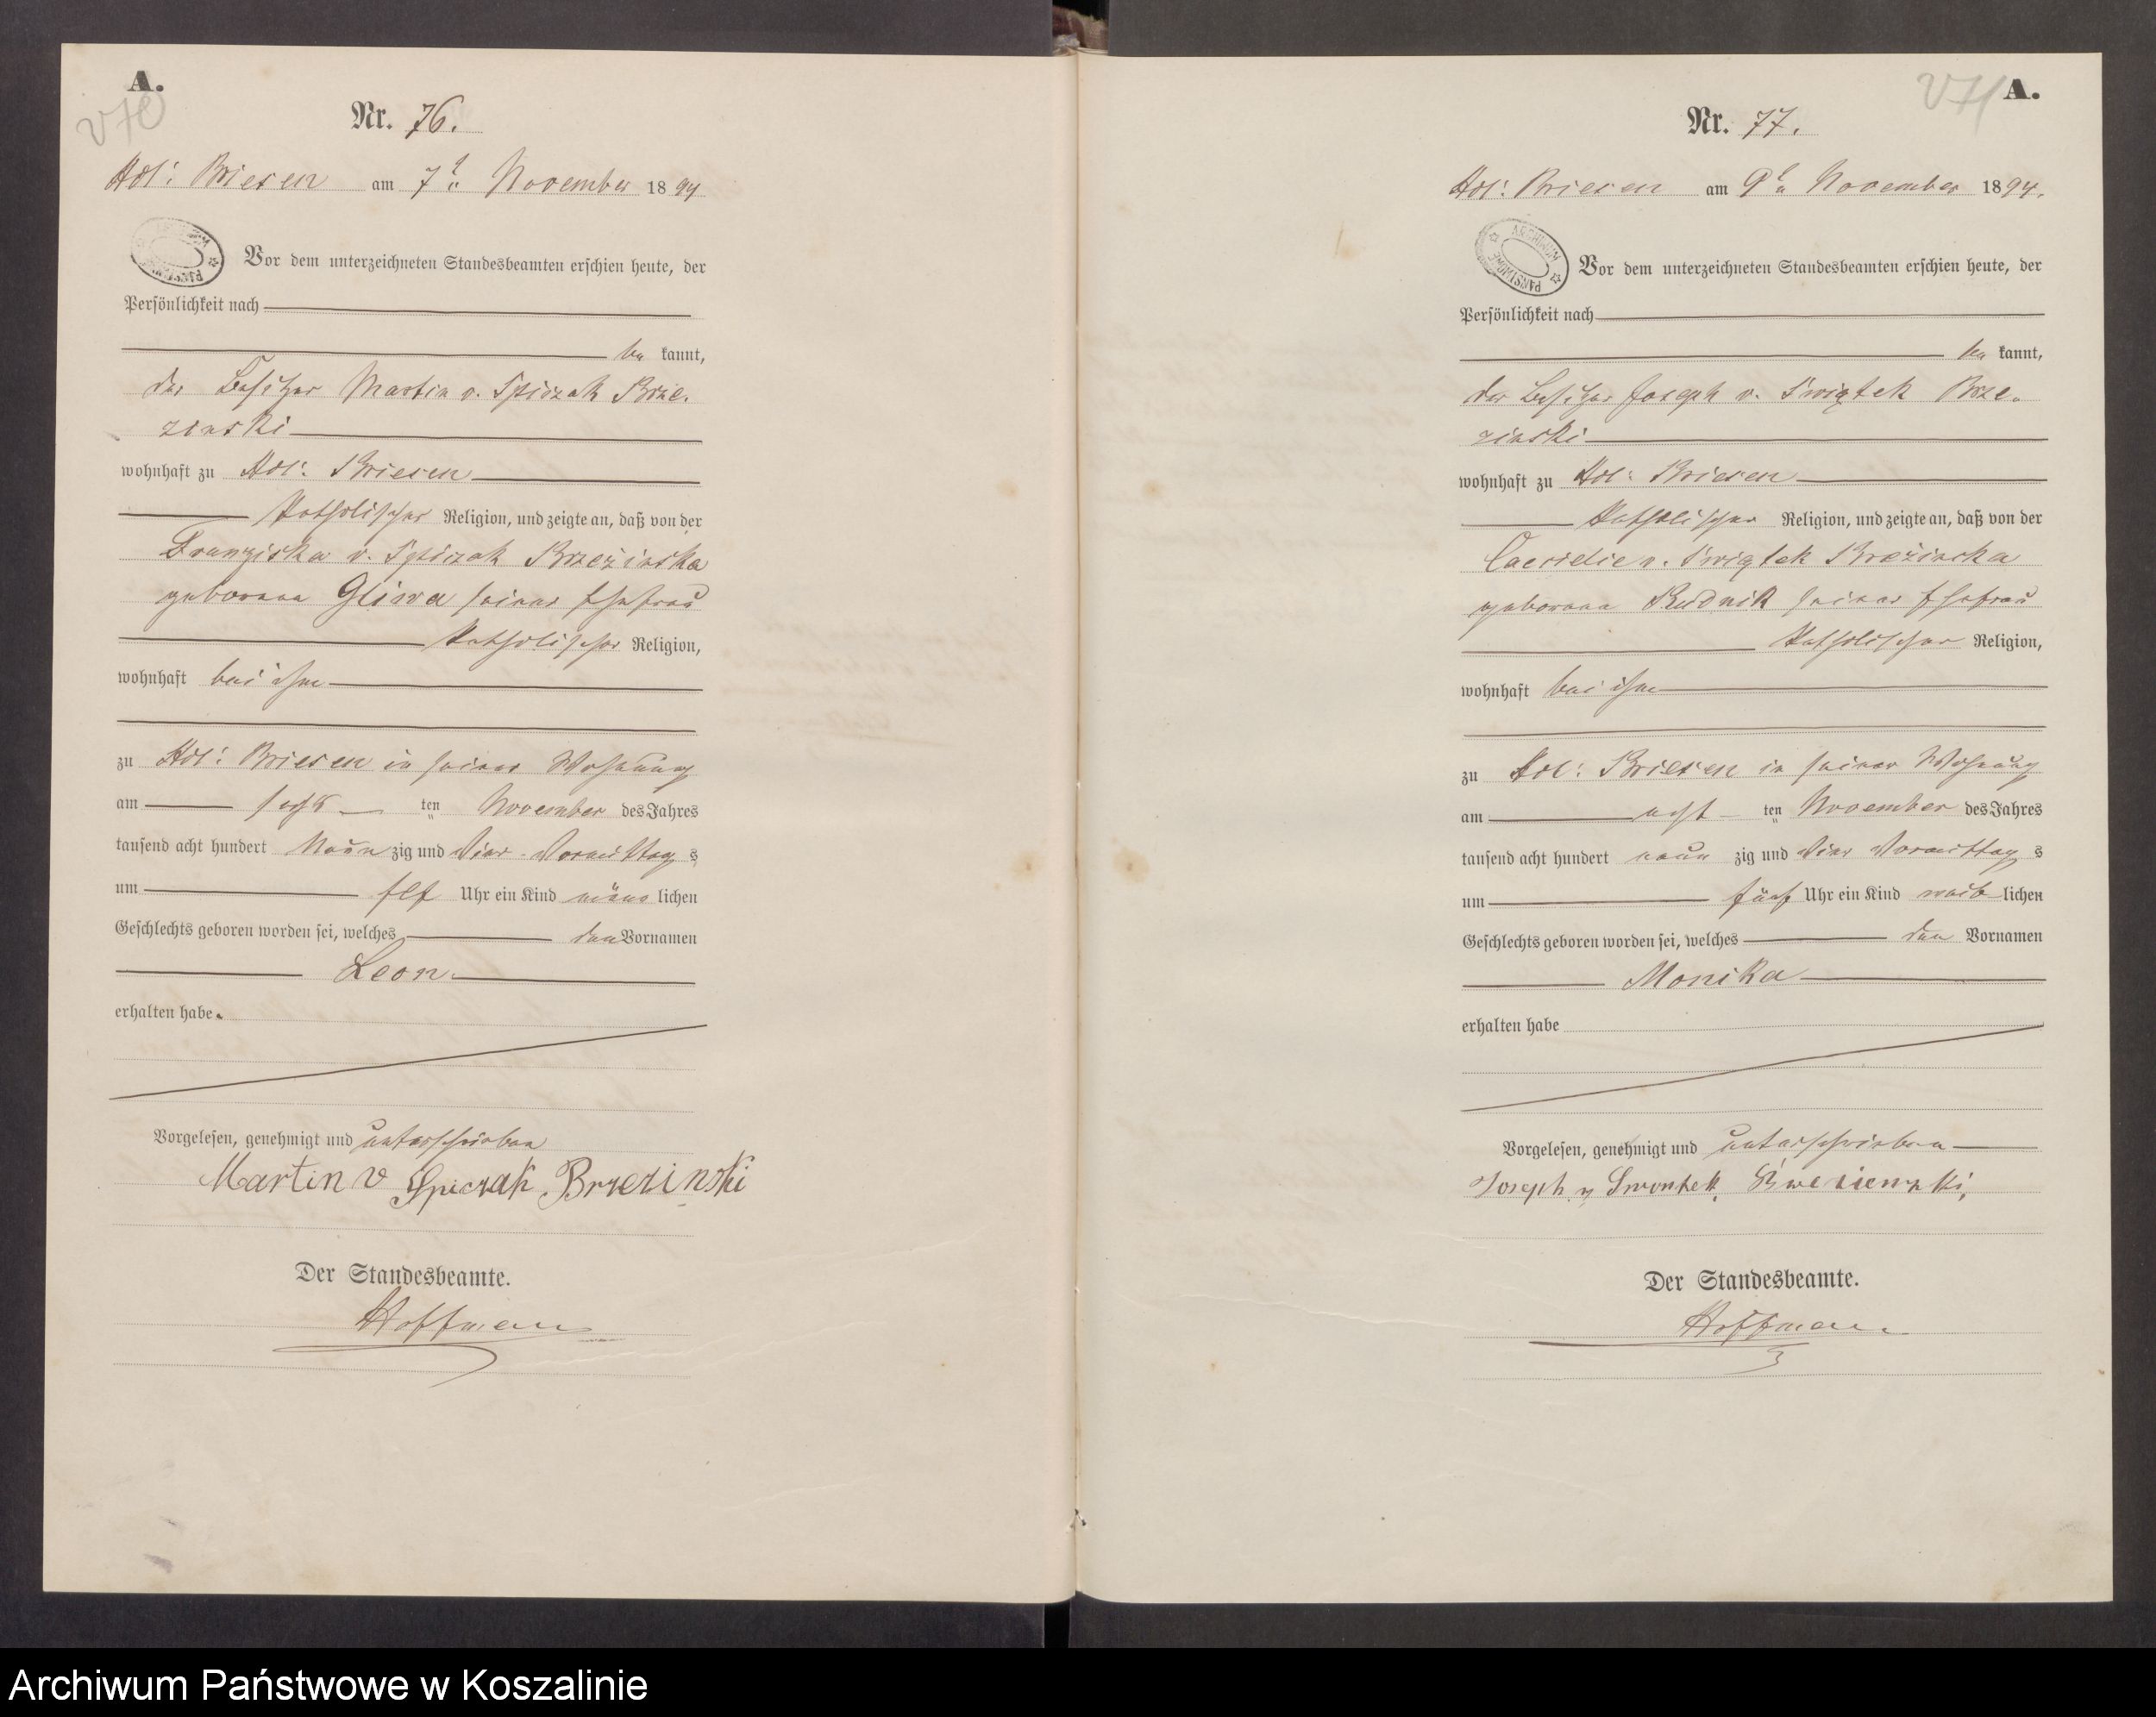 A.
V70
Nr. 76.
Adl: Briesen am 7t. November 1894
Vor dem unterzeichneten Standesbeamten erschien heute, der
Persönlichkeit nach
be kannt,
der Besitzer Martin v. Spiczak Brze-
zinski
wohnhaft zu Adl: Briesen
katholischer Religion, und zeigte an, daß von der
Franziska v. Spiczak Brzezinska
geborene Gliwa seiner Ehefrau
katholischer Religion,
wohnhaft bei ihm
zu Adl: Briesen in seiner Wohnung
am sechs ten November des Jahres
tausend acht hundert Neun zig und Vier Vormittag s
um elf Uhr ein Kind männ lichen
Geschlechts geboren worden sei, welches den Vornamen
Leon
erhalten habe.
Vorgelesen, genehmigt und unterschrieben
Martin v Spiczak Brzezinski
Der Standesbeamte.
Hoffmann
V71
A.
Nr. 77.
Adl: Briesen am 9t. November 1894.
ARCHIWUM PAŃSTWOWE
Vor dem unterzeichneten Standesbeamten erschien heute, der
Persönlichkeit nach
be kannt,
der Besitzer Joseph v. Swiątek Brze-
zinski
wohnhaft zu Adl: Briesen
katholischer Religion, und zeigte an, daß von der
Caecielie v. Swiątek Brezinska
geborene Rudnik seiner Ehefrau
katholischer Religion,
wohnhaft bei ihm
zu Adl: Briesen in seiner Wohnung
am acht ten November des Jahres
tausend acht hundert neun zig und Vier Vormittag s
um fünf Uhr ein Kind weib lichen
Geschlechts geboren worden sei, welches den Vornamen
Monika
erhalten habe
Vorgelesen, genehmigt und unterschrieben
Joseph v Swontek
Der Standesbeamte.
Hoffmann
Archiwum Państwowe w Koszalinie